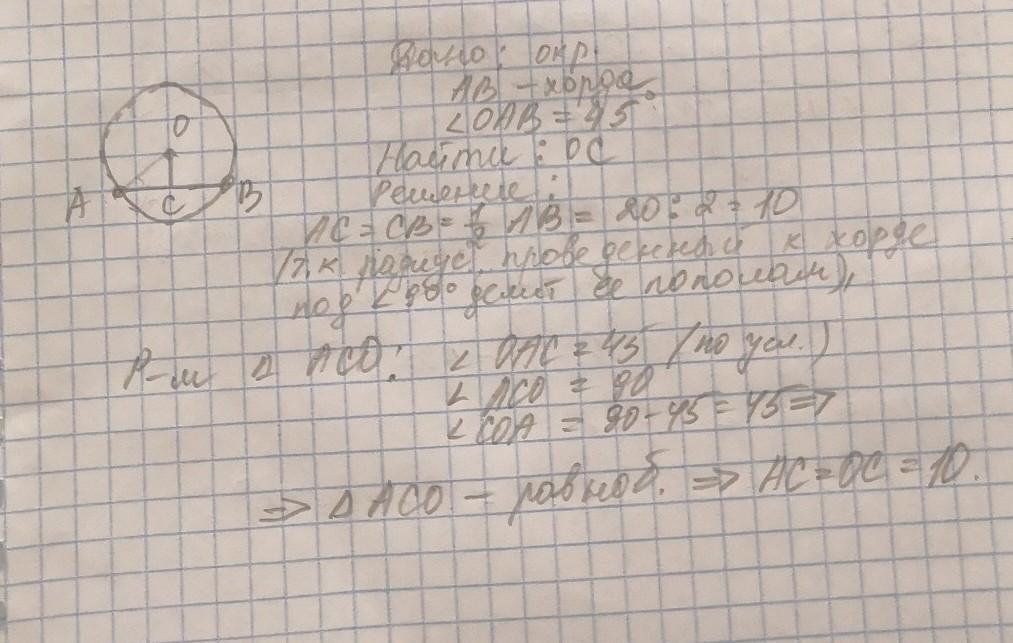 Дано: окр.
AB – хорда
∠OAB = 45°
Найти: OC
Решение:
AC = CB = 1/2 AB = 20 : 2 = 10
(т.к радиус, проведенный к хорде
под ∠90° делит ее пополам),
Р-м Δ ACO: ∠ OAC = 45 (по усл.)
∠ ACO = 90
∠ COA = 90 - 45 = 45 =>
=> Δ ACO – равноб. => AC = OC = 10.
O
A
C
B